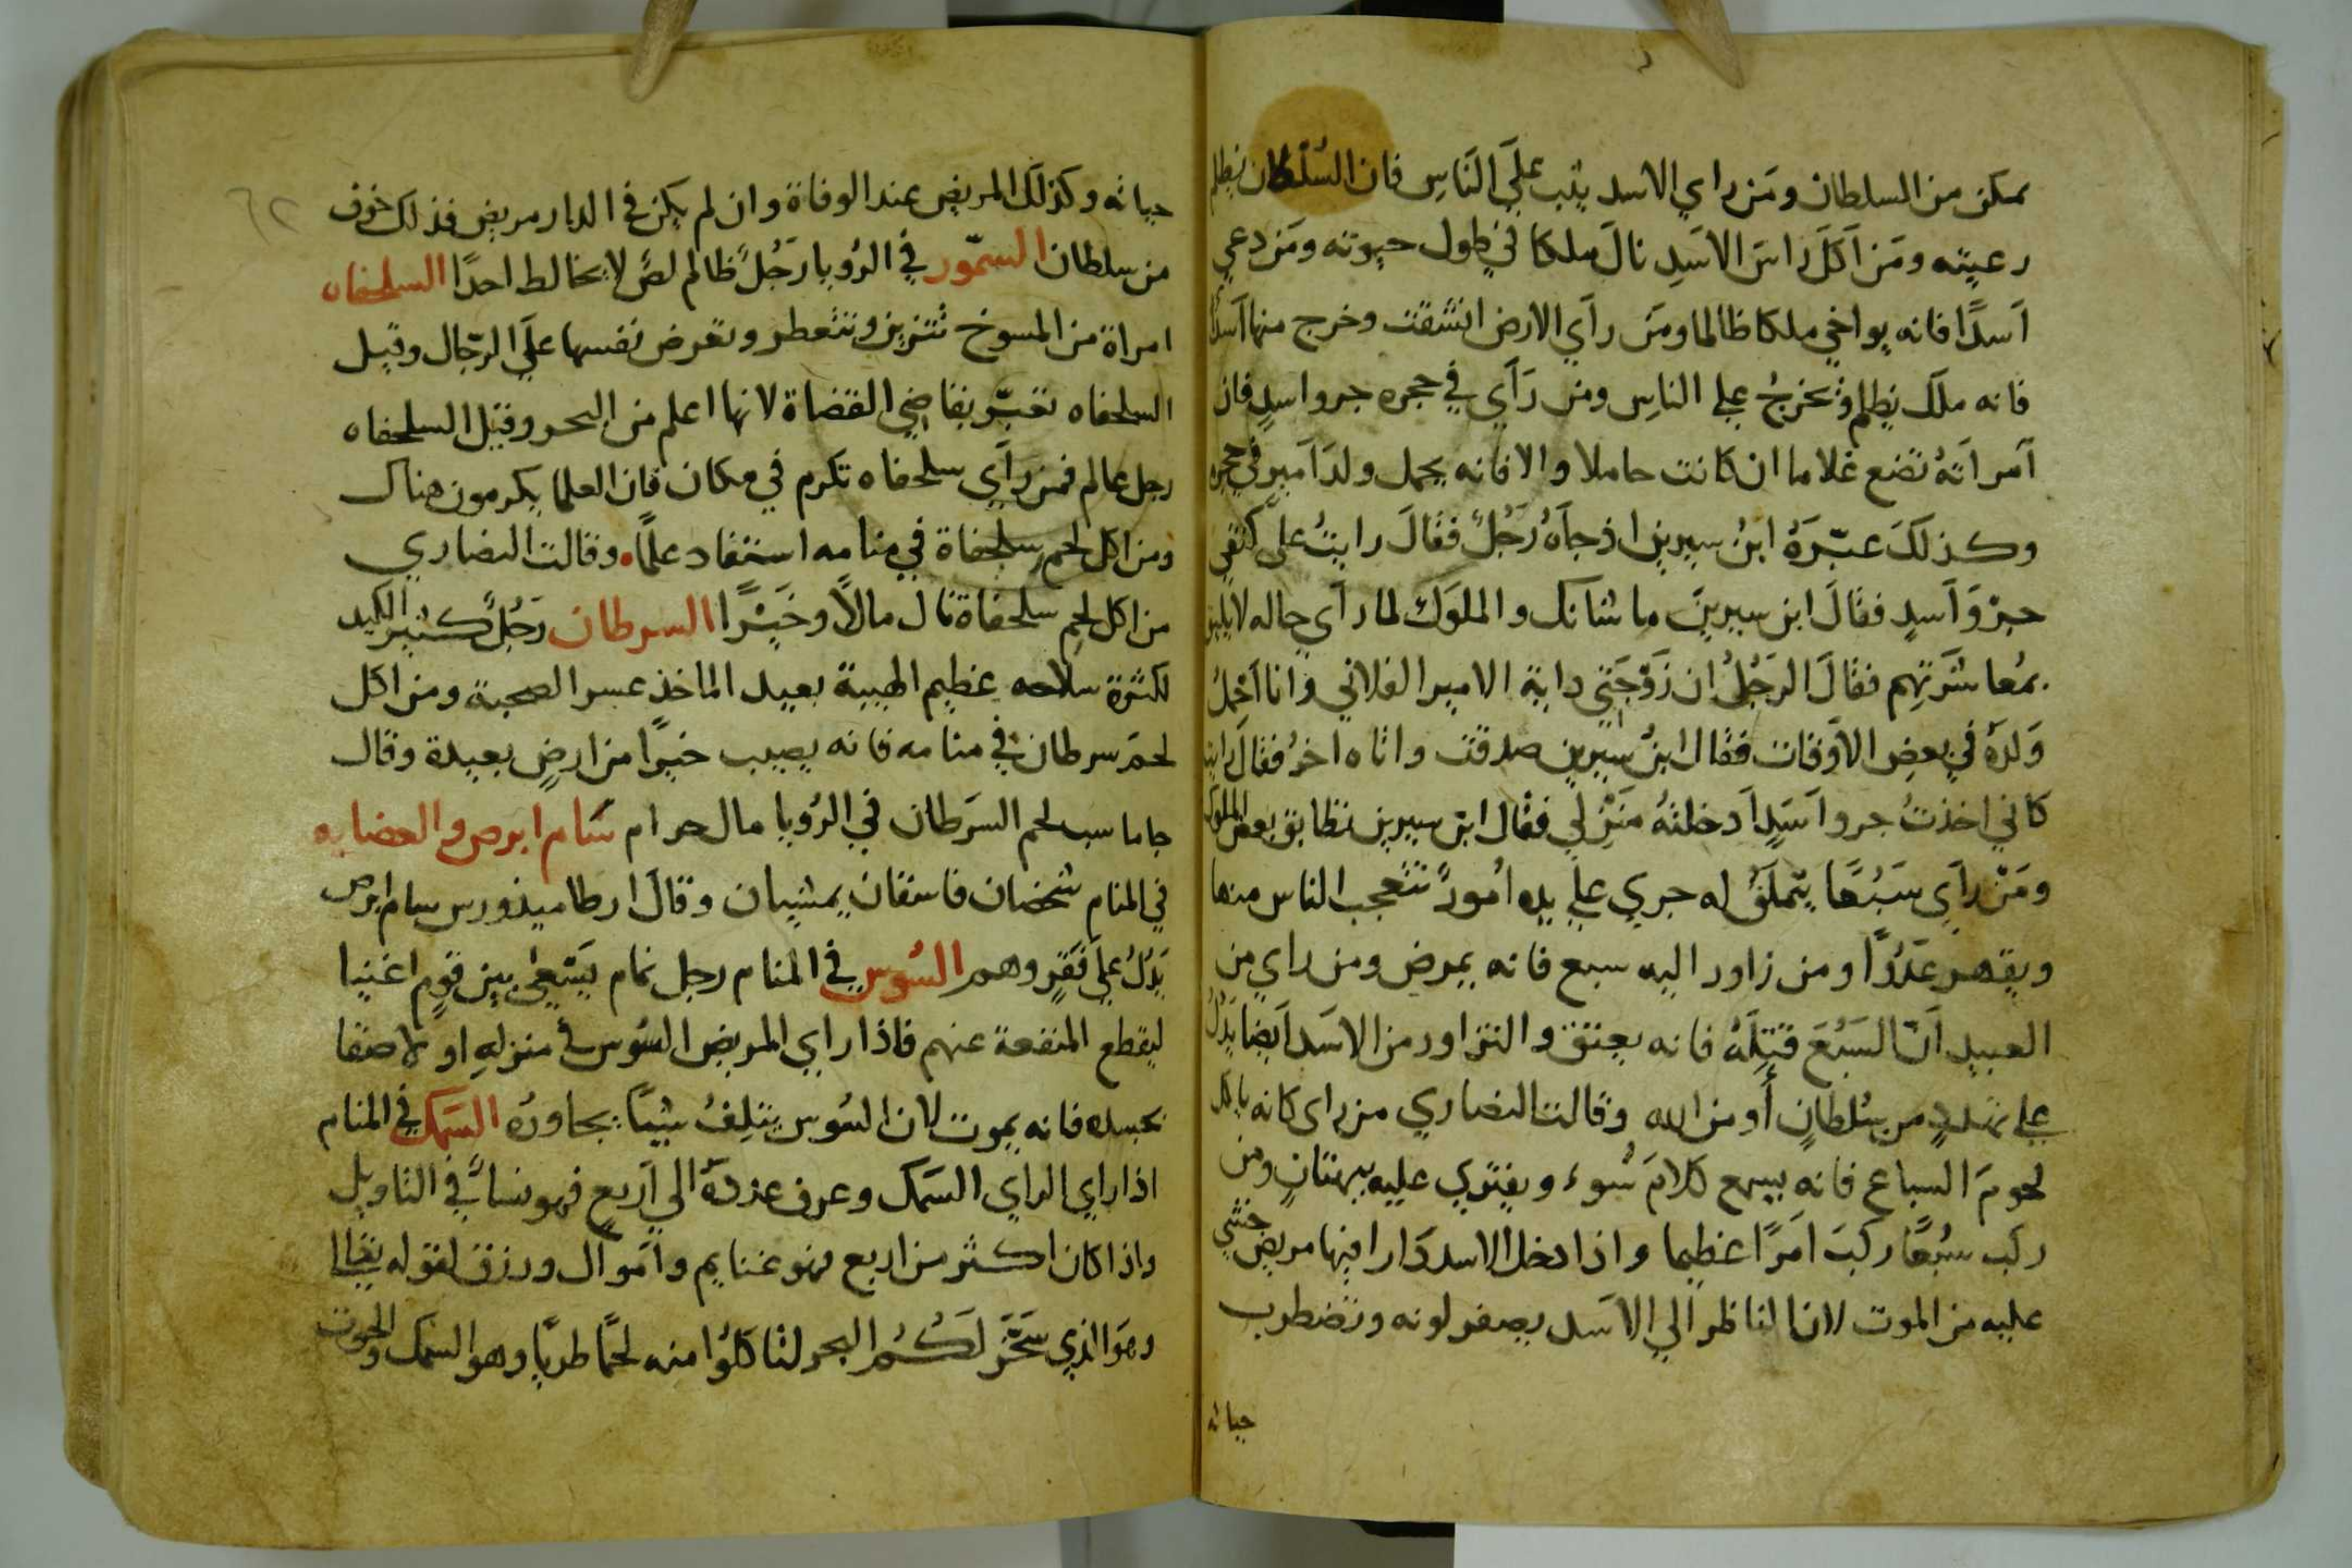 يمكن من السلطان ومَن راي الاسد يثب علَي النَاسِ فان السُلطان يظلم
رعيته ومَن اَكَلَ راسَ الاسَدِ نالَ ملكا في طول حيوته ومَن دعي
اَسدًا فانه يواخي ملكا ظالما ومَن رآي الارض انشقت وخرج منها اَسدًا
فانه ملك يظلم ويخرجُ علي الناسِ ومن رَآي في حجره جرو اسدٍ فان
اَمراَتهُ تضع غلاما ان كانت حاملا والا فانه يحمل ولدَ اَميرٍ في حجره
وكذلكَ عبّرَهُ ابنُ سيرين اذ جآهُ رَجُلٌ فقالَ رايتُ علي كتفي
جِرْوَ اَسدٍ فقالَ ابن سيرينَ ما شانك والملوَك لما رآي حاله لا يليق
بمُعاشَرَتِهِم فقالَ الرَجُلُ ان زَوْجَتي داية الامير الفلاني وانا اَحْملُ
وَلدهُ في بعضِ الاَوْقات فقال ابنُ سيرين صدقت واتاه اخرُ فقالَ رايت
كاني اخذتُ جرو اَسَدٍ اَدخلتهُ مَنْزِلي فقال ابن سيرين تظابق بعض الملوك
ومَنْ رآي سَبُعًا يتملَقُ له جري علي يده اُمورٌ تتعجب الناس منها
ويقهر عَدُوًا ومن زاور اليه سبع فانه يمرض ومن راي من
العبيد اَنّ السَبُعَ قتلَهُ فانه يعتق والتزاور من الاسَد اَيضا يَدُلُ
علي تهددٍ من سُلطانٍ أو من الله وقالت النصاري من راي كانه ياكل
لحومَ السباع فانه يسمع كلامَ سُوء ويفتري عليه ببهتانٍ ومن
ركب سبُعًا ركبَ اَمرًا عظيما واذا دخل الاسد دَارا فيها مريض خشي
عليه من الموت لان الناظر الي الاسَد يصفر لونه وتضطرب
حياته
٦٢
حياته وكذلك المريض عند الوفاة وان لم يكن في الدار مريض فذلك خوف
من سلطان السمّور في الرُويا رَجُلٌ ظالم لصٌ لا يخالط احدًا السلحفاه
امراة من المسوخ تتزين وتتعطر وتعرض نفسها علَي الرّجال وقيل
السلحفاه تعبّر بقاضِي القضاة لانها اعلم من البحر وقيل السلحفاه
رجل عالم فمن رآي سلحفاه تكرم في مكان فان العلما يكرمون هناك
ومن اكل لحم سلحفاة في منامه استفاد علمًا وقالت النصاري
من اكل لحم سلحفاة نال مالاً وخَيْرًا السرطان رَجُلٌ كثير الكيد
لكثرة سلاحه عظيم الهيبة بعيد الماخذ عسر الصحبة ومن اكل
لحمَ سرطان في منامه فانه يصيب خيرًا من ارضٍ بعيدة وقال
جاماسب لحم السَرَطان في الرُويا مال حرام سَام ابرص والعضايه
في المنام شخصان فاسقان يمشيان وقالَ ارطاميذورس سام ابرص
يَدُلُ علَي فَقرٍ وهم السُوس في المنام رجل نمام يَسْعَي بين قومٍ اغنيا
ليقطع المنفعة عنهم فاذا راي المريض السُوس في منزلهِ او لاصقا
بجسده فانه يموت لان السُوس يتلِفُ شيئًا يجاورُه السَمَك في المنام
اذا راي الراي السَمَك وعرف عددهُ الي اَربع فهو نسآٌ في التاويل
واذا كان اكثر من اربع فهو غنايم واَموال ورزق لقوله تعالا
وهَو الذي سَخّر لَكُمُ البحر لتاكلُوا منه لحمًا طريًا وهو السمك والحوت